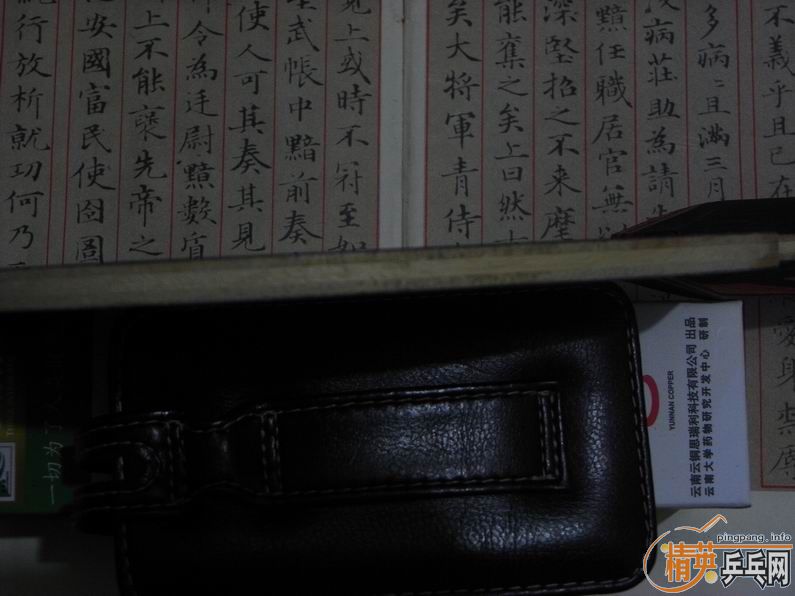 不義乎且已在
愛身
多病〻且滿三月
病莊助為請
黯任職居官無以
深堅招之不來麾
能奪之矣上曰然
矣大將軍青侍
見上或時不冠至如
武帳中黯前奏
使人可其奏其見
令為廷尉黯數質
上不能褒先帝之
安國富民使囹圄
行放析就功何乃
一切为了
YUNNAN COPPER
云南云铜思瑞利科技有限公司 出品
云南大学药物研究开发中心 研制
pingpang.info
精英乒乓网